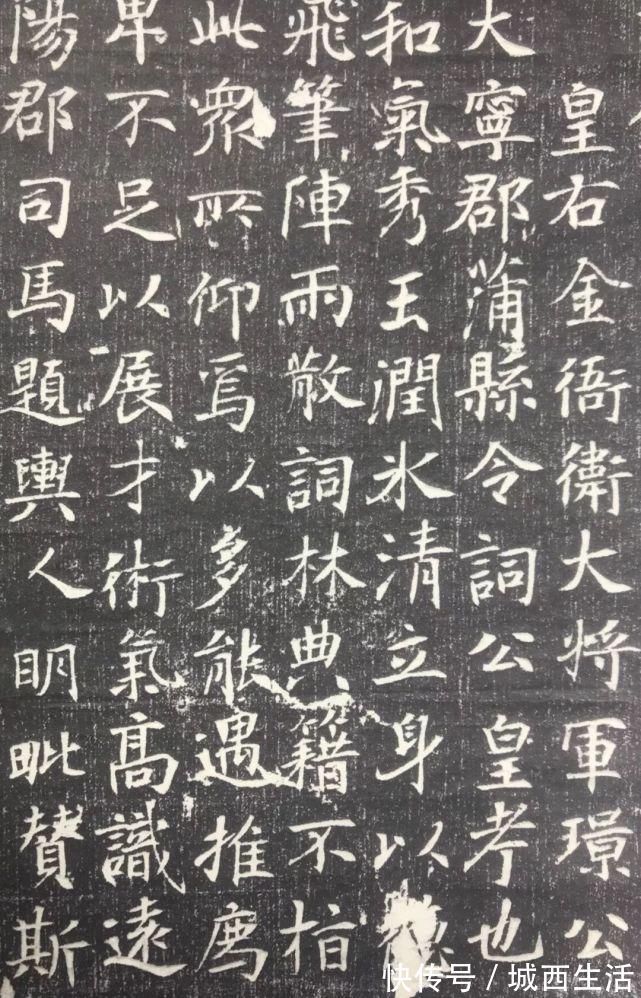 皇右金衙衛大将軍璟公
大寧郡蒲縣令詞公皇考也
和氣秀玉潤氷清立身以
飛筆陣雨散詞林典籍不指
此眾所仰焉以多能遇推廌
卑不足以展才術氣髙識遠
陽郡司馬題輿人明毗賛斯
快传号/城西生活